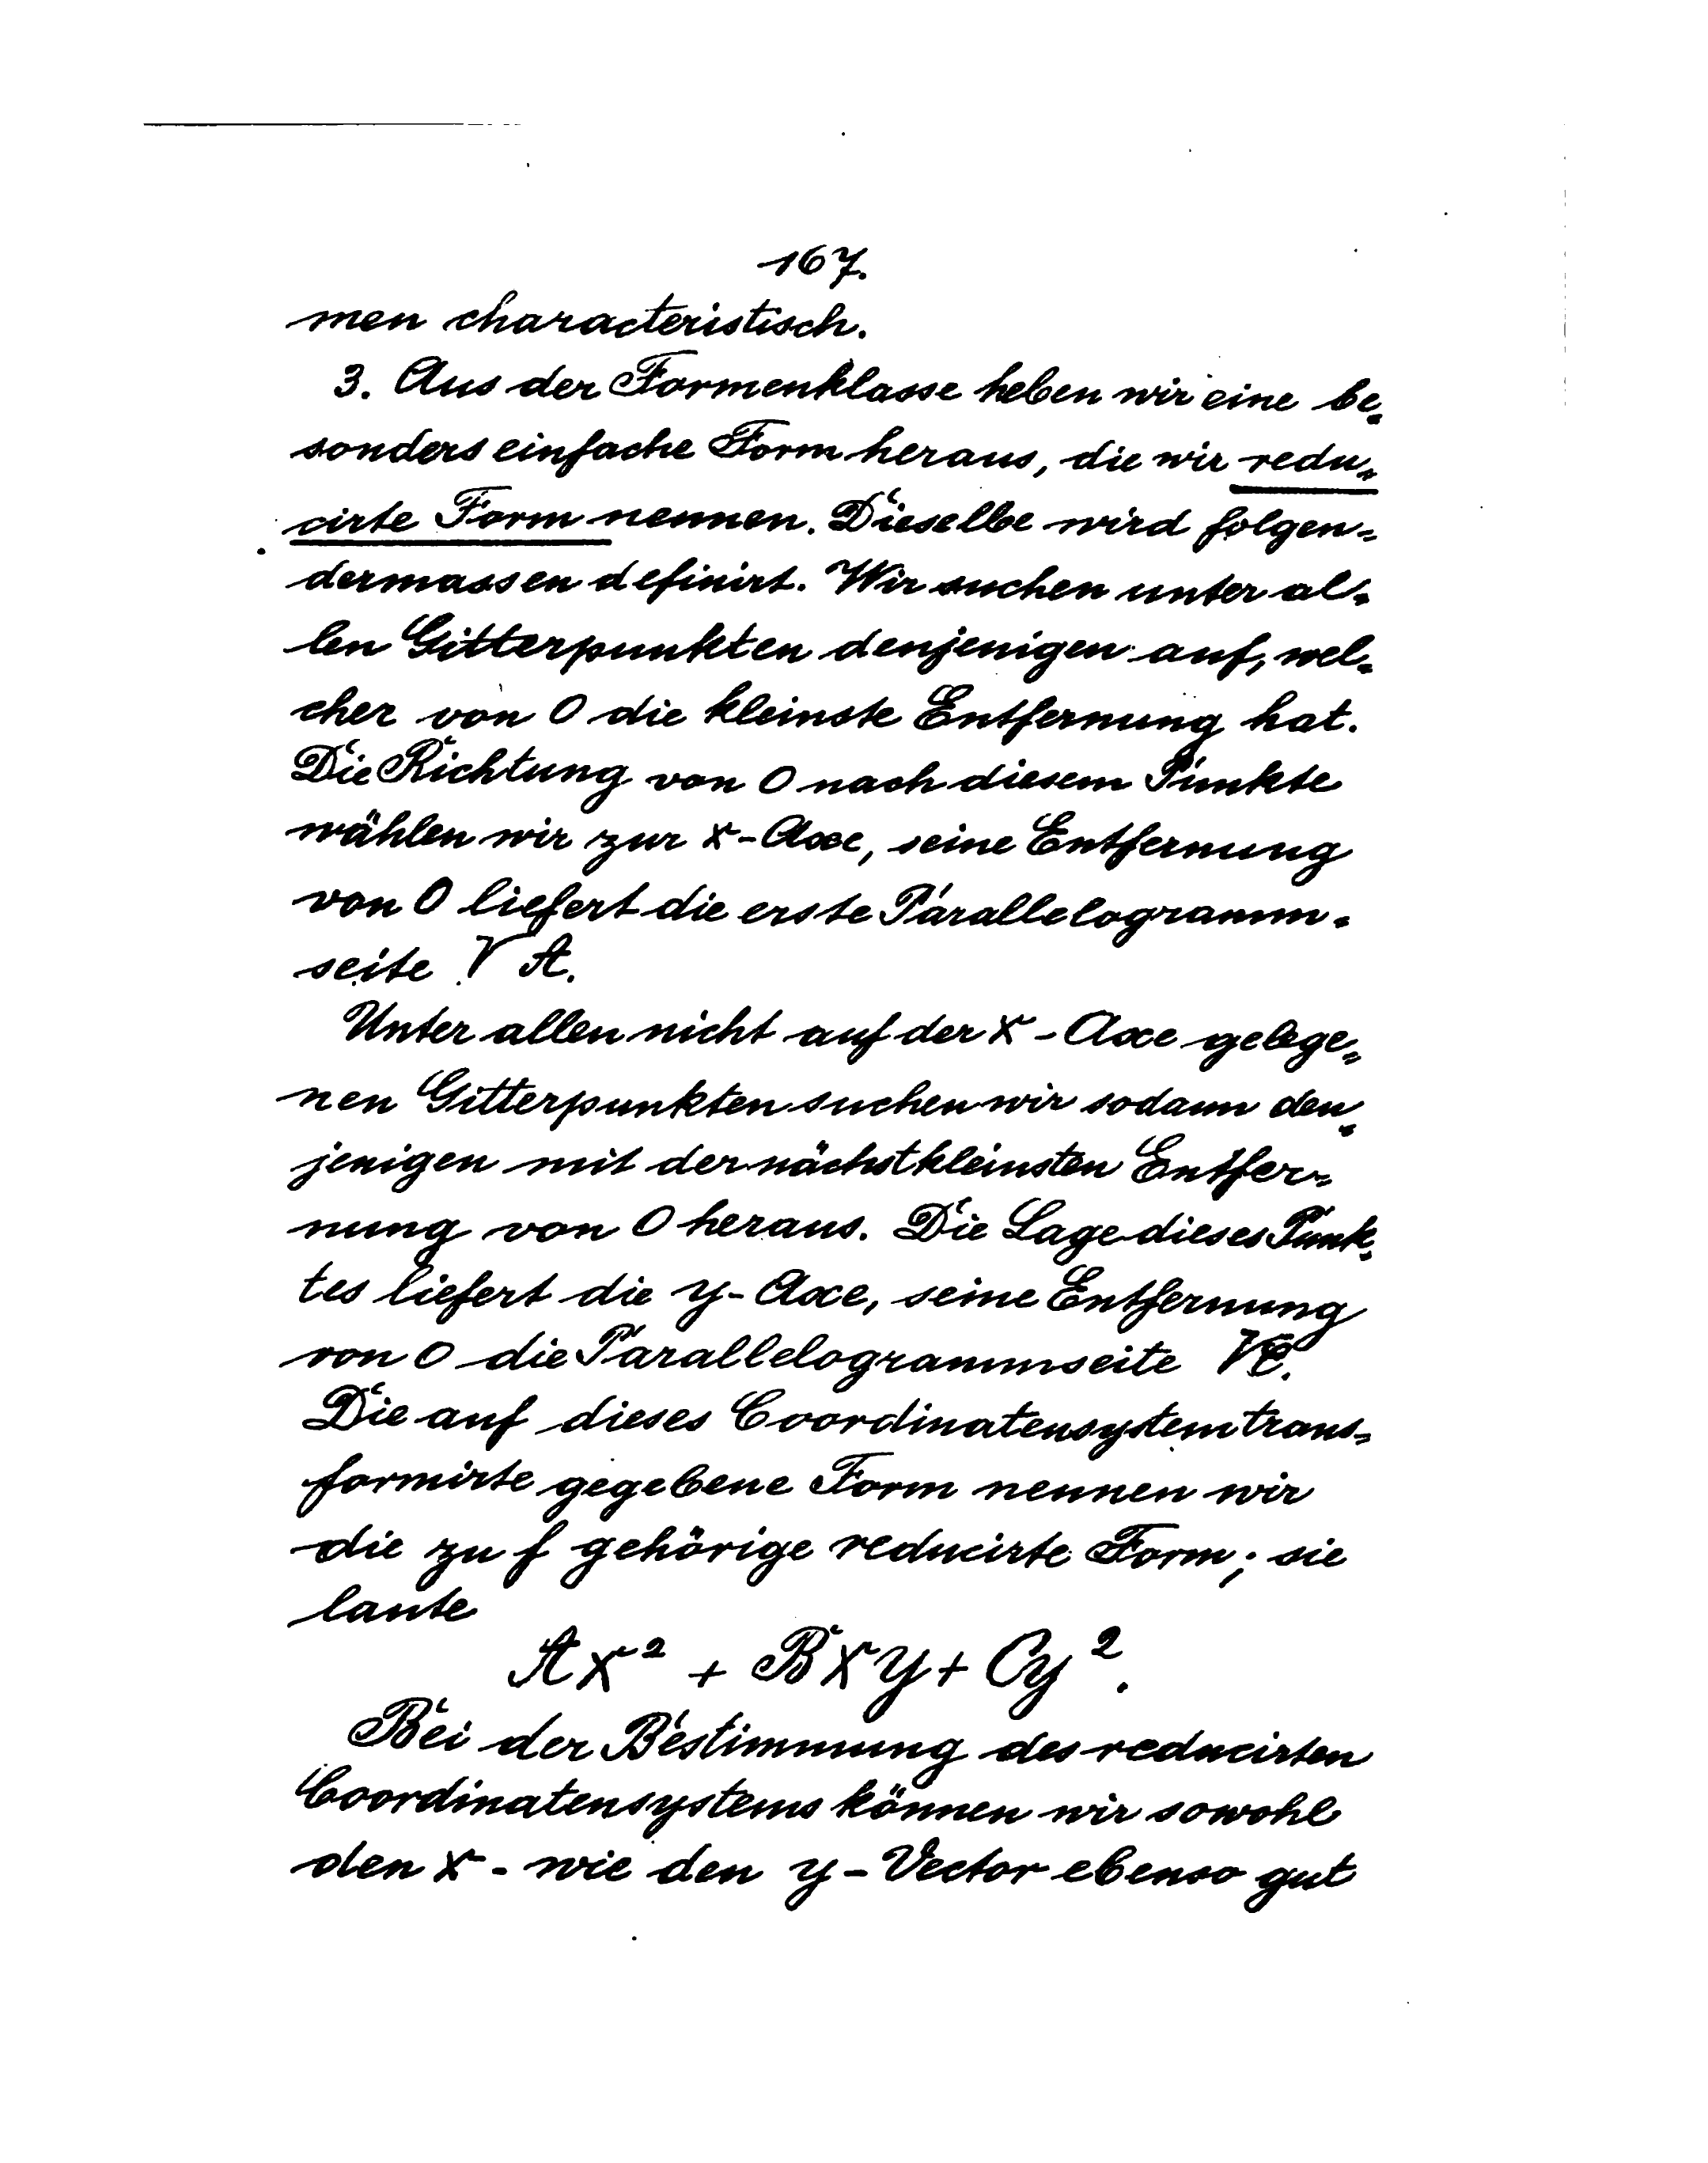 167.
men characteristisch.
3. Aus der Formenklasse heben wir eine be=
sonders einfache Form heraus, die wir redu=
cirte Form nennen. Dieselbe wird folgen=
dermassen definirt. Wir suchen unter al=
len Gitterpunkten denjenigen auf, wel=
cher von O die kleinste Entfernung hat.
Die Richtung von O nach diesem Punkte
wählen wir zur x-Axe, seine Entfernung
von O liefert die erste Parallelogramm=
seite √A.
Unter allen nicht auf der x-Axe gelege=
nen Gitterpunkten suchen wir sodann den=
jenigen mit der nächstkleinsten Entfer=
nung von O heraus. Die Lage dieses Punk=
tes liefert die y-Axe, seine Entfernung
von O die Parallelogrammseite √C.
Die auf dieses Coordinatensystem trans=
formirte gegebene Form nennen wir
die zu f gehörige reducirte Form; sie
laute
Ax² + Bxy + Cy².
Bei der Bestimmung des reducirten
Coordinatensystems können wir sowohl
den x- wie den y-Vector ebenso gut